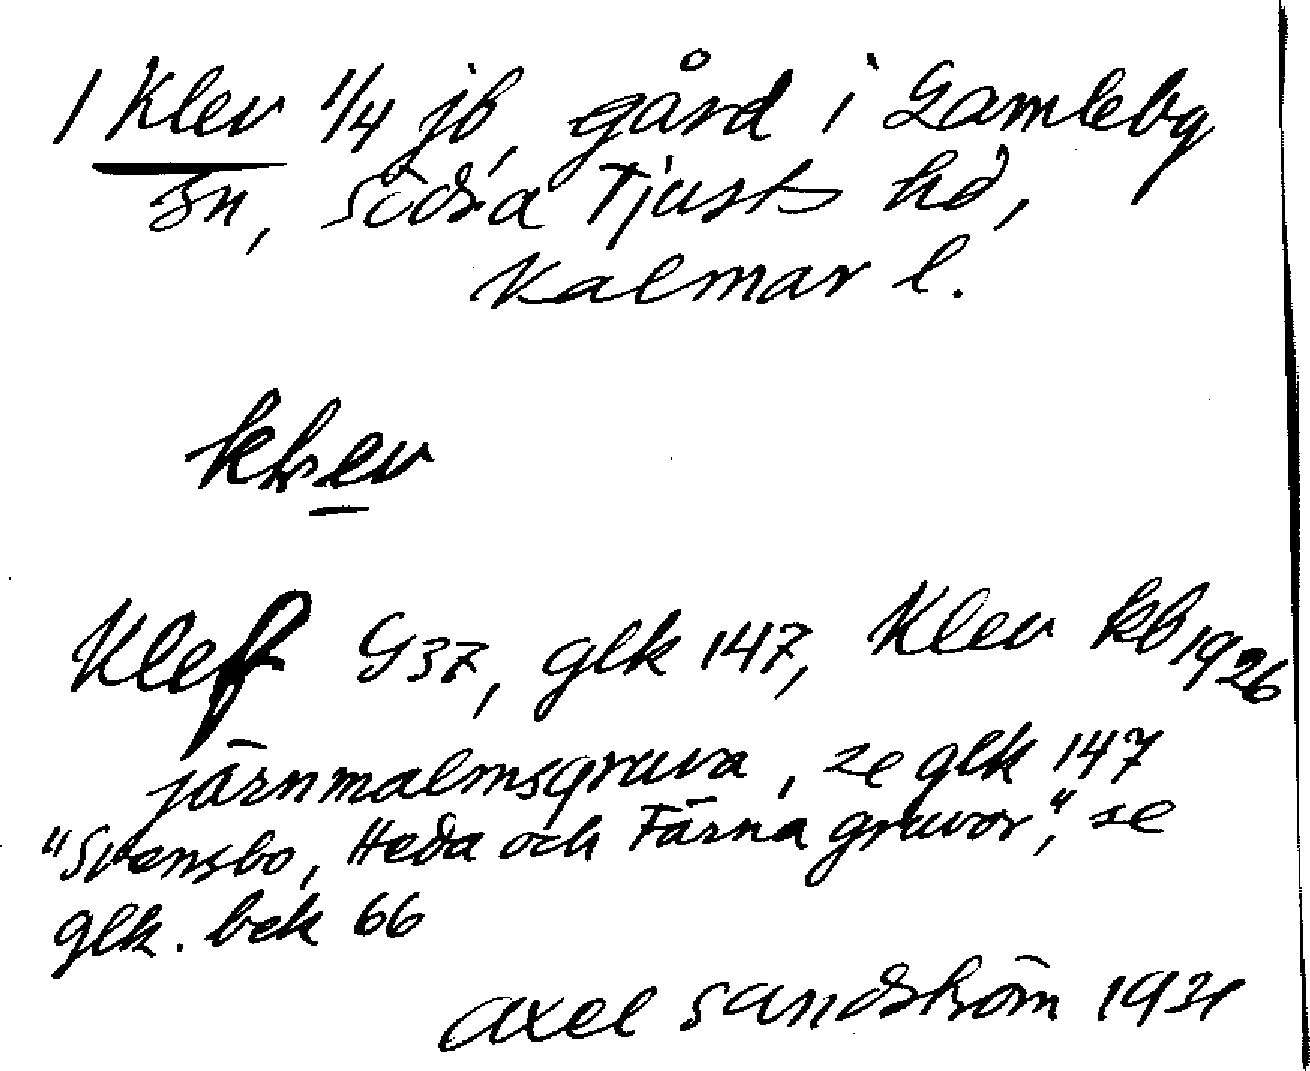 1 Klev 1/4 jb, gård i Gamleby
sn, Södra Tjusts hd,
Kalmar l.
Klef G37, glk 147, Klev kb 1926
järnmalmsgruva, se glk 147
"Svensbo, Heda och Färna gruvor", se
glk. bek 66
Axel Sandström 1931